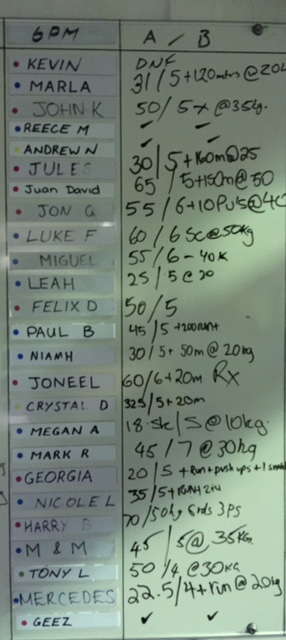 6PM A / B
KEVIN DNF
MARLA 31 / 5+120mtrs @ 20
JOHN K 50 / 5 @ 35kg.
REECE M ✓ ✓
ANDREW N ✓ ✓
JULES 30 / 5+160m@25
Juan David 65 / 5+150m@50
JON G 55 / 6+10PU's@40
LUKE F 60 / 6 Sc@50kg
MIGUEL 55 / 6 - 40K
LEAH 25 / 5 @ 20
FELIX D 50 / 5
PAUL B 45 / 5 +200RUN
NIAMH 30 / 5+ 50m @ 20kg
JONEEL 60 / 6+20m RX
CRYSTAL D 32.5 / 5+20m
MEGAN A 18.5k / 5 @ 10kg.
MARK R 45 / 7 @ 30kg
GEORGIA 20 / 5 + Run+push ups +1
NICOLE L 35 / 5+
HARRY 70 / 50kg 6rds 3ps
M & M 45 / 5@ 35KG.
TONY L 50 / 4 @ 30KG
MERCEDES 22.5 / 4+run @ 20kg
GEEZ ✓ ✓